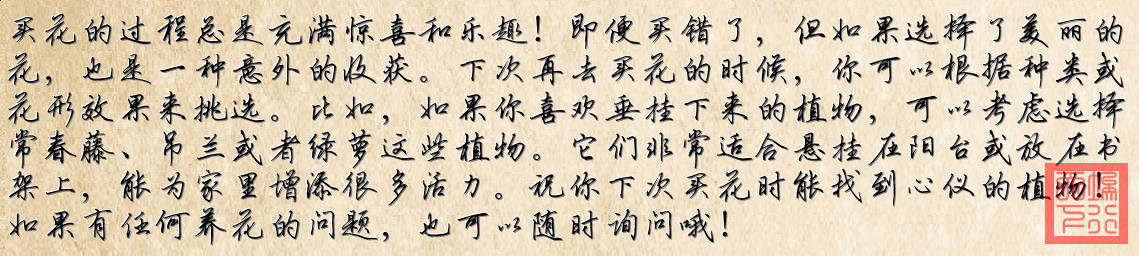 买花的过程总是充满惊喜和乐趣！即便买错了，但如果选择了美丽的
花，也是一种意外的收获。下次再去买花的时候，你可以根据种类或
花形效果来挑选。比如，如果你喜欢垂挂下来的植物，可以考虑选择
常春藤、吊兰或者绿萝这些植物。它们非常适合悬挂在阳台或放在书
架上，能为家里增添很多活力。祝你下次买花时能找到心仪的植物！
如果有任何养花的问题，也可以随时询问哦！